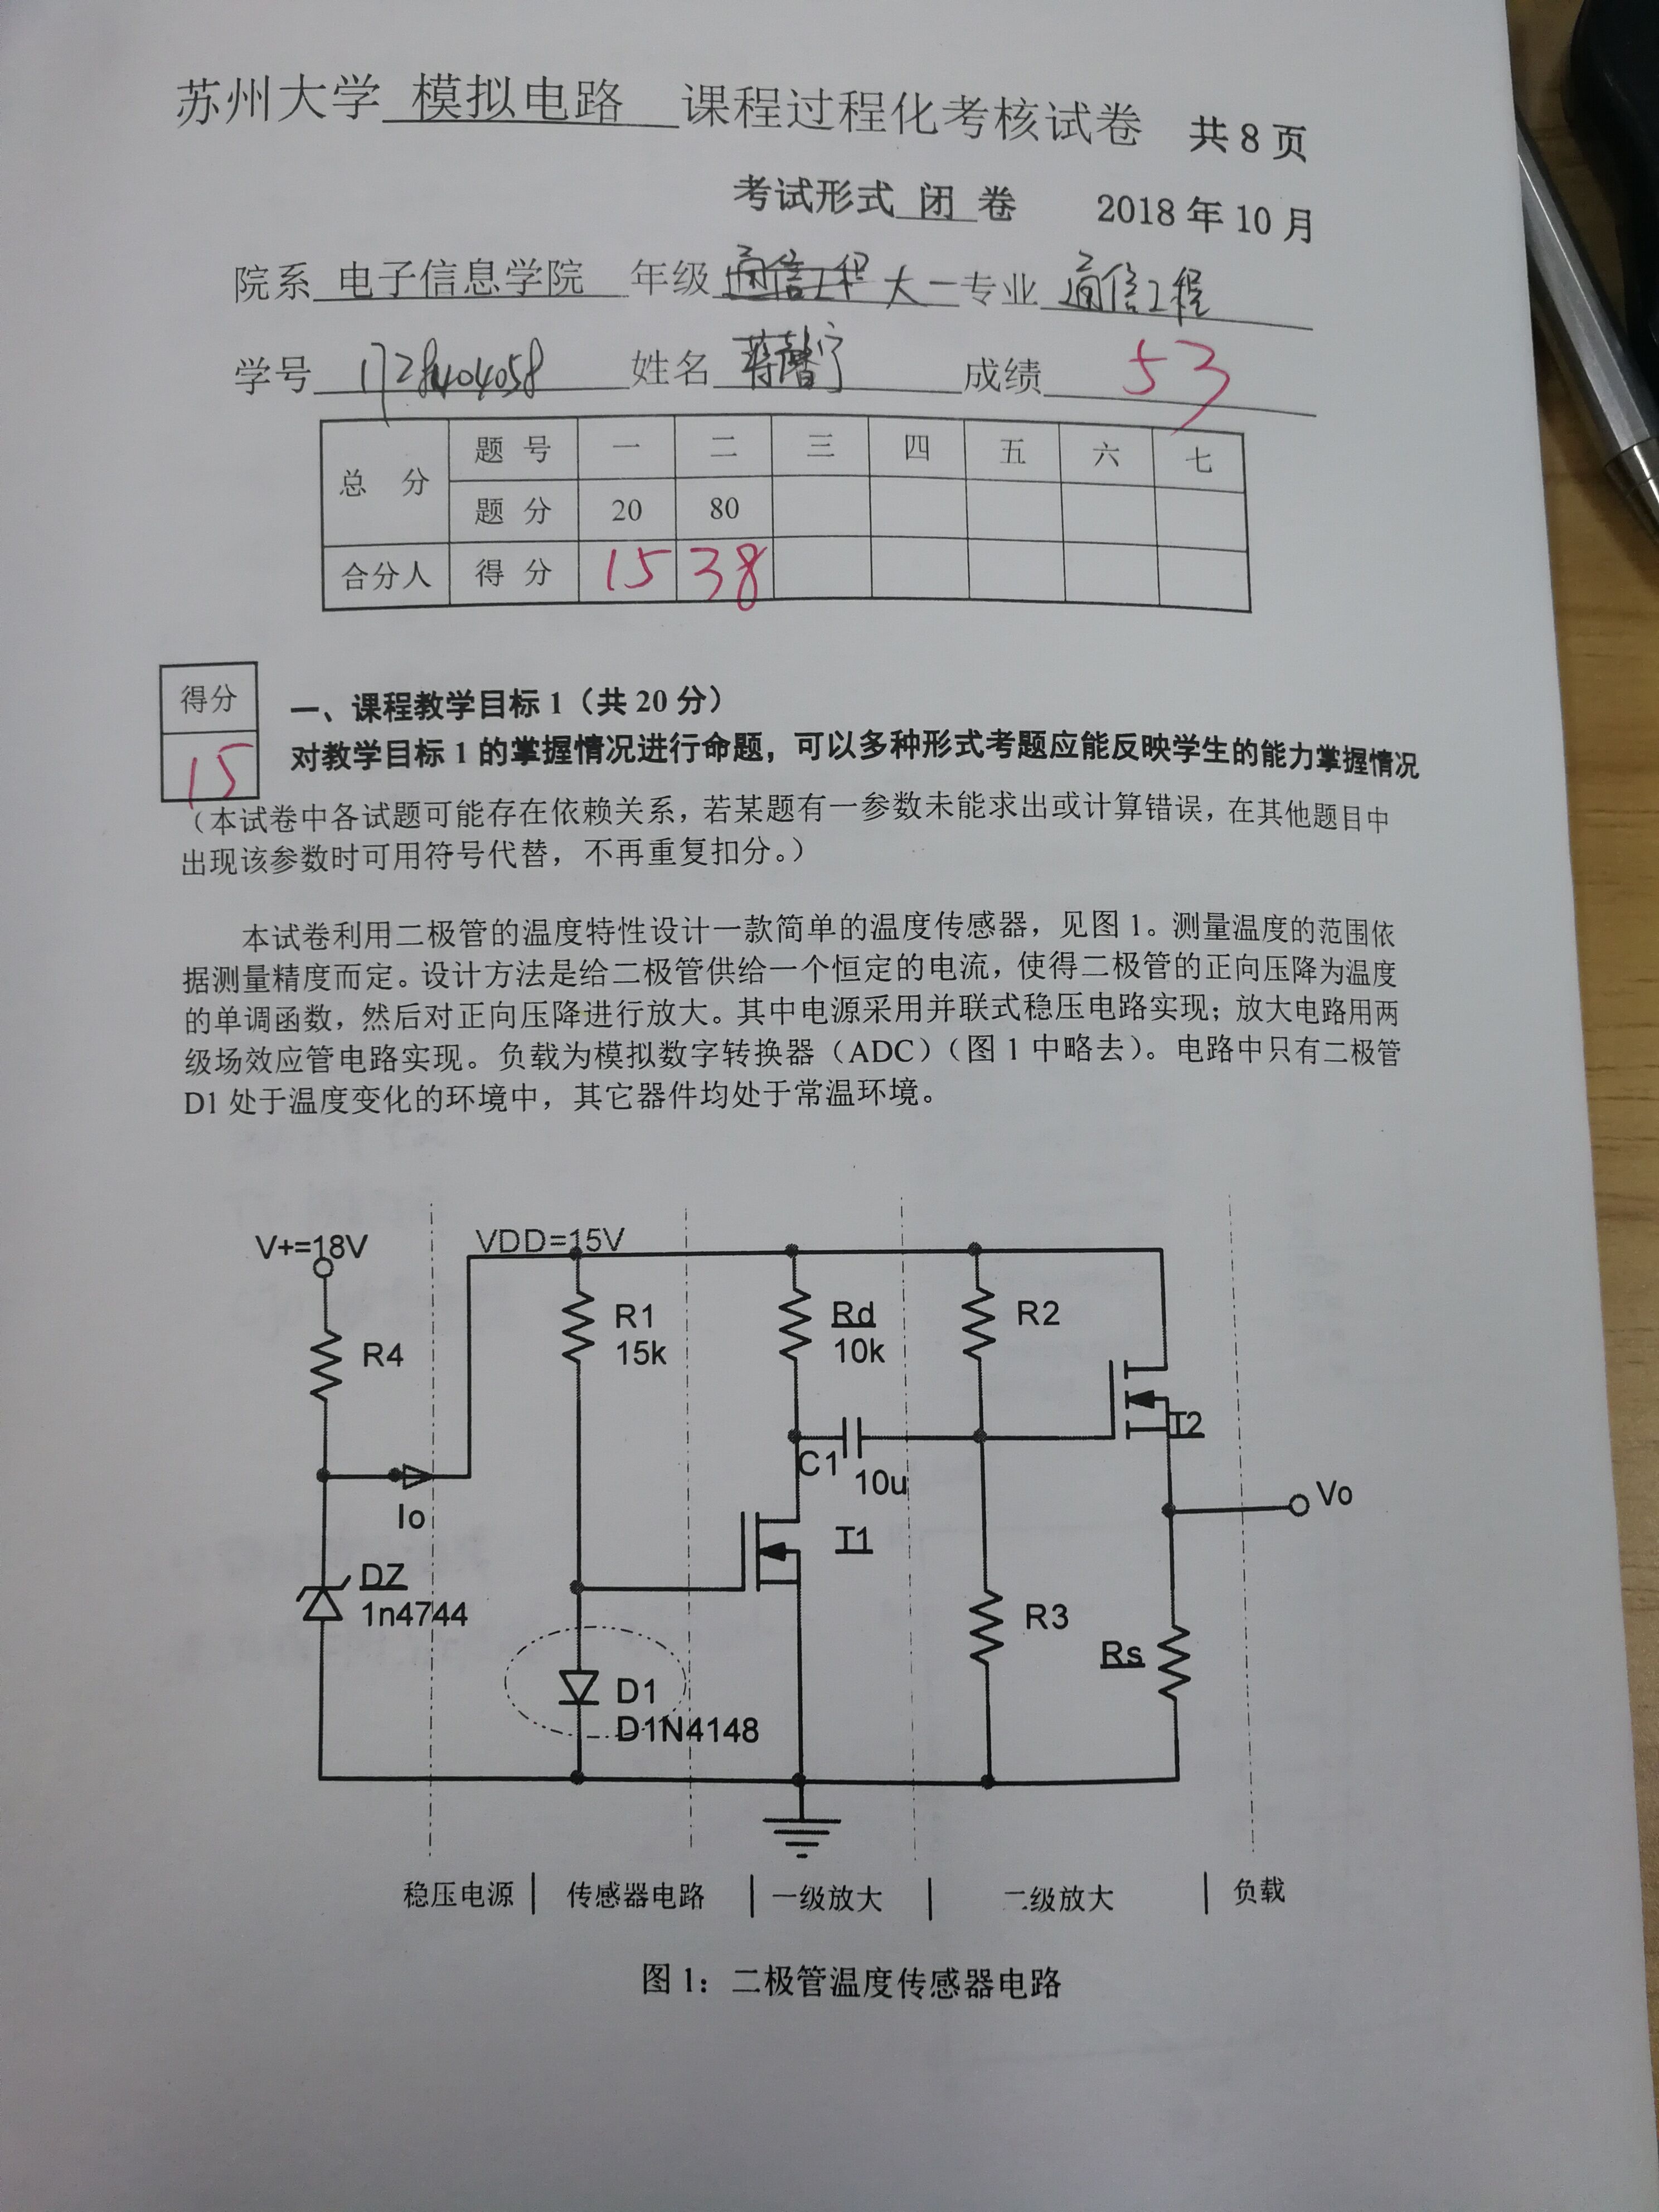 苏州大学 模拟电路 课程过程化考核试卷 共 8 页
考试形式 闭 卷 2018 年 10 月
院系 电子信息学院 年级 通信工程 大一 专业 通信工程
学号 1728404058 姓名 成绩 53
总 分 题 号 一 二 三 四 五 六 七
题 分 20 80
合分人 得 分 15 38
得分
15
一、课程教学目标 1（共 20 分）
对教学目标 1 的掌握情况进行命题，可以多种形式考题应能反映学生的能力掌握情况
（本试卷中各试题可能存在依赖关系，若某题有一参数未能求出或计算错误，在其他题目中
出现该参数时可用符号代替，不再重复扣分。）
本试卷利用二极管的温度特性设计一款简单的温度传感器，见图 1。测量温度的范围依
据测量精度而定。设计方法是给二极管供给一个恒定的电流，使得二极管的正向压降为温度
的单调函数，然后对正向压降进行放大。其中电源采用并联式稳压电路实现；放大电路用两
级场效应管电路实现。负载为模拟数字转换器（ADC）（图 1 中略去）。电路中只有二极管
D1 处于温度变化的环境中，其它器件均处于常温环境。
V+=18V
VDD=15V
R4
R1
15k
Rd
10k
R2
T2
C1
10u
Io
Vo
T1
DZ
1n4744
R3
Rs
D1
D1N4148
稳压电源 | 传感器电路 | 一级放大 | 二级放大 | 负载
图 1：二极管温度传感器电路